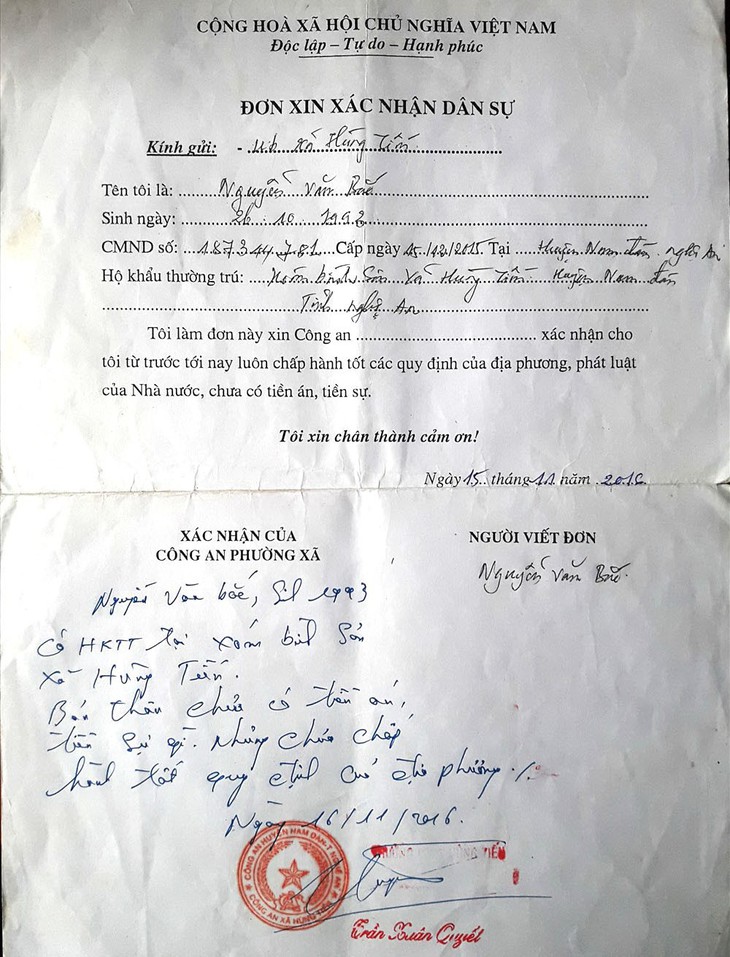 CỘNG HOÀ XÃ HỘI CHỦ NGHĨA VIỆT NAM
Độc lập – Tự do – Hạnh phúc
ĐƠN XIN XÁC NHẬN DÂN SỰ
Kính gửi: - Ub xã Hùng Tiến
Tên tôi là: Nguyễn Văn Bắc
Sinh ngày: 26.10.1993
CMND số: 187344781 Cấp ngày 15/12/2015 Tại Huyện Nam đàn, nghệ An
Hộ khẩu thường trú: Xóm bình Sơn Xã Hùng Tiến Huyện Nam đàn
Tỉnh nghệ An
Tôi làm đơn này xin Công an xác nhận cho
tôi từ trước tới nay luôn chấp hành tốt các quy định của địa phương, phát luật
của Nhà nước, chưa có tiền án, tiền sự.
Tôi xin chân thành cảm ơn!
Ngày 15 tháng 11 năm 2016
XÁC NHẬN CỦA
CÔNG AN PHƯỜNG XÃ
NGƯỜI VIẾT ĐƠN
Nguyễn Văn Bắc
Nguyễn Văn bắc, 1993
Có HKTT tại xóm bình Sơn
xã Hùng Tiến.
Bản thân chưa có tiền án,
tiền sự gì. Nhưng chưa chấp
hành tốt quy định của địa phương ./.
Ngày 16/11/2016.
CÔNG AN HUYỆN NAM ĐÀN-T.NGHỆ AN
CÔNG AN XÃ HÙNG TIẾN
Trần Xuân Quyết